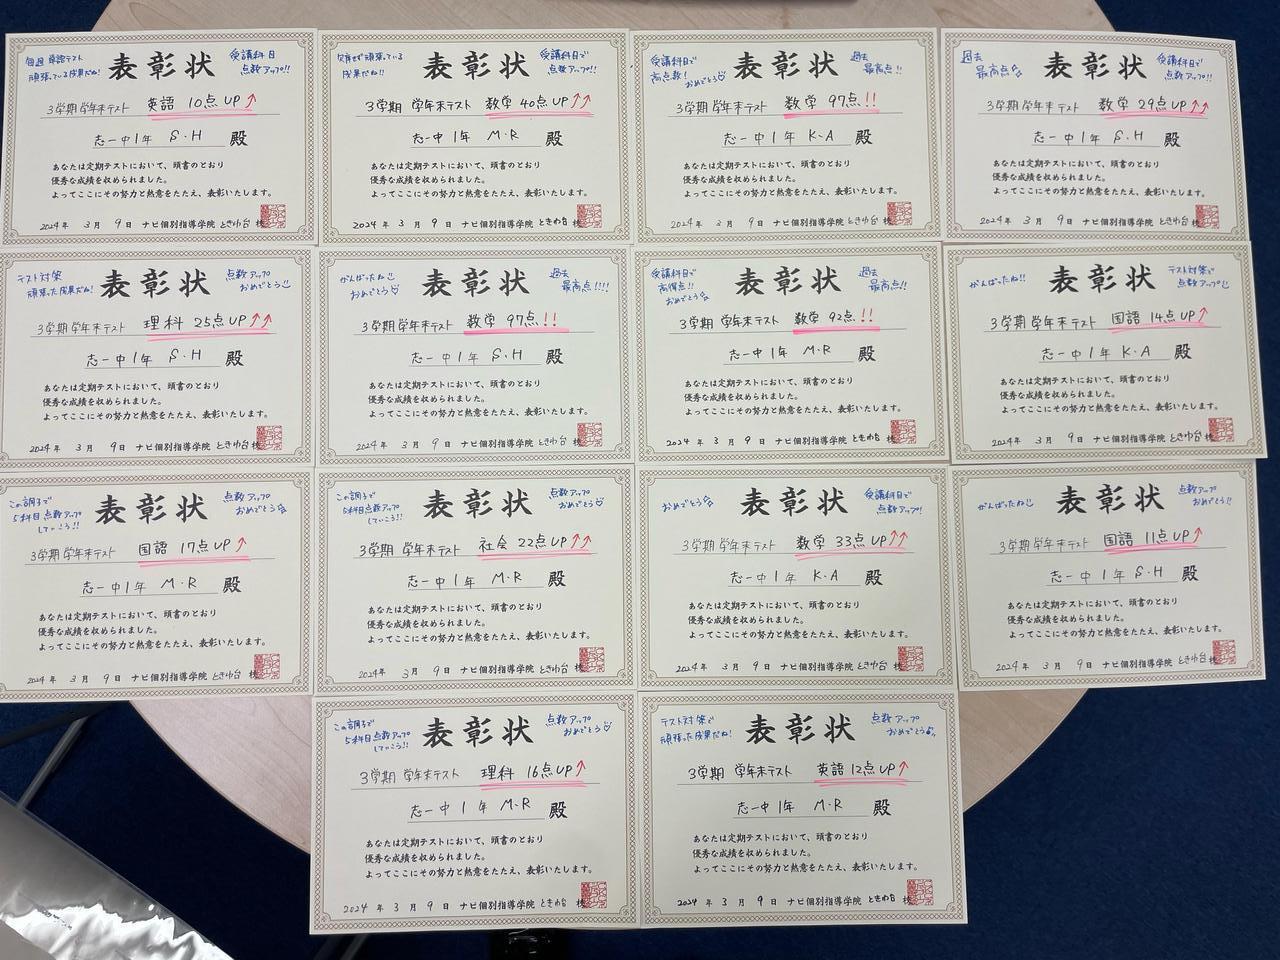 毎週 単語テスト
頑張っている成果だね!
表彰状
受講科目
点数アップ!!
3学期 学年末テスト 英語 10点UP↑
志一中1年 S・H 殿
あなたは定期テストにおいて、頭書のとおり
優秀な成績を収められました。
よってここにその努力と熱意をたたえ、表彰いたします。
2024年 3月 9日 ナビ個別指導学院 ときわ台 校
欠席せず頑張っている
成果だね!!
表彰状
受講科目で
点数アップ!!
3学期 学年末テスト 数学 40点UP↑↑
志一中 1年 M・R 殿
あなたは定期テストにおいて、頭書のとおり
優秀な成績を収められました。
よってここにその努力と熱意をたたえ、表彰いたします。
2024年 3月 9日 ナビ個別指導学院 ときわ台 校
受講科目で
高点数! おめでとう
表彰状
過去
最高点!!
3学期 学年末テスト 数学 97点!!
志一中1年 K・A 殿
あなたは定期テストにおいて、頭書のとおり
優秀な成績を収められました。
よってここにその努力と熱意をたたえ、表彰いたします。
2024年 3月 9日 ナビ個別指導学院 ときわ台 校
過去
最高点
表彰状
受講科目で
点数アップ!!
3学期 学年末テスト 数学 29点UP↑↑
志一中1年 S・H 殿
あなたは定期テストにおいて、頭書のとおり
優秀な成績を収められました。
よってここにその努力と熱意をたたえ、表彰いたします。
2024年 3月 9日 ナビ個別指導学院 ときわ台 校
テスト対策
頑張った成果だね!
表彰状
点数アップ
おめでとう
3学期 学年末テスト 理科 25点UP↑↑
志一中1年 S・H 殿
あなたは定期テストにおいて、頭書のとおり
優秀な成績を収められました。
よってここにその努力と熱意をたたえ、表彰いたします。
2024年 3月 9日 ナビ個別指導学院 ときわ台 校
がんばったね
おめでとう
表彰状
過去
最高点!!!!
3学期 学年末テスト 数学 97点!!
志一中1年 S・H 殿
あなたは定期テストにおいて、頭書のとおり
優秀な成績を収められました。
よってここにその努力と熱意をたたえ、表彰いたします。
2024年 3月 9日 ナビ個別指導学院 ときわ台 校
受講科目で
高得点!!
おめでとう
表彰状
過去
最高点!!
3学期 学年末テスト 数学 92点!!
志一中1年 M・R 殿
あなたは定期テストにおいて、頭書のとおり
優秀な成績を収められました。
よってここにその努力と熱意をたたえ、表彰いたします。
2024年 3月 9日 ナビ個別指導学院 ときわ台 校
がんばったね!!
表彰状
テスト対策で
点数アップ
3学期 学年末テスト 国語 14点UP↑
志一中1年 K・A 殿
あなたは定期テストにおいて、頭書のとおり
優秀な成績を収められました。
よってここにその努力と熱意をたたえ、表彰いたします。
2024年 3月 9日 ナビ個別指導学院 ときわ台 校
この調子で
5科目点数アップ
していこう!!
表彰状
点数アップ
おめでとう
3学期 学年末テスト 国語 17点UP↑
志一中1年 M・R 殿
あなたは定期テストにおいて、頭書のとおり
優秀な成績を収められました。
よってここにその努力と熱意をたたえ、表彰いたします。
2024年 3月 9日 ナビ個別指導学院 ときわ台 校
この調子で
5科目点数アップ
していこう!!
表彰状
点数アップ
おめでとう
3学期 学年末テスト 社会 22点UP↑↑
志一中1年 M・R 殿
あなたは定期テストにおいて、頭書のとおり
優秀な成績を収められました。
よってここにその努力と熱意をたたえ、表彰いたします。
2024年 3月 9日 ナビ個別指導学院 ときわ台 校
おめでとう
表彰状
受講科目で
点数アップ!
3学期 学年末テスト 数学 33点UP↑↑
志一中1年 K・A 殿
あなたは定期テストにおいて、頭書のとおり
優秀な成績を収められました。
よってここにその努力と熱意をたたえ、表彰いたします。
2024年 3月 9日 ナビ個別指導学院 ときわ台 校
がんばったね
表彰状
点数アップ
おめでとう!!
3学期 学年末テスト 国語 11点UP↑
志一中1年 S・H 殿
あなたは定期テストにおいて、頭書のとおり
優秀な成績を収められました。
よってここにその努力と熱意をたたえ、表彰いたします。
2024年 3月 9日 ナビ個別指導学院 ときわ台 校
この調子で
5科目点数アップ
していこう!!
表彰状
点数アップ
おめでとう
3学期 学年末テスト 理科 16点UP↑
志一中1年 M・R 殿
あなたは定期テストにおいて、頭書のとおり
優秀な成績を収められました。
よってここにその努力と熱意をたたえ、表彰いたします。
2024年 3月 9日 ナビ個別指導学院 ときわ台 校
テスト対策で
頑張った成果だね!
表彰状
点数アップ
おめでとう
3学期 学年末テスト 英語 12点UP↑
志一中1年 M・R 殿
あなたは定期テストにおいて、頭書のとおり
優秀な成績を収められました。
よってここにその努力と熱意をたたえ、表彰いたします。
2024年 3月 9日 ナビ個別指導学院 ときわ台 校